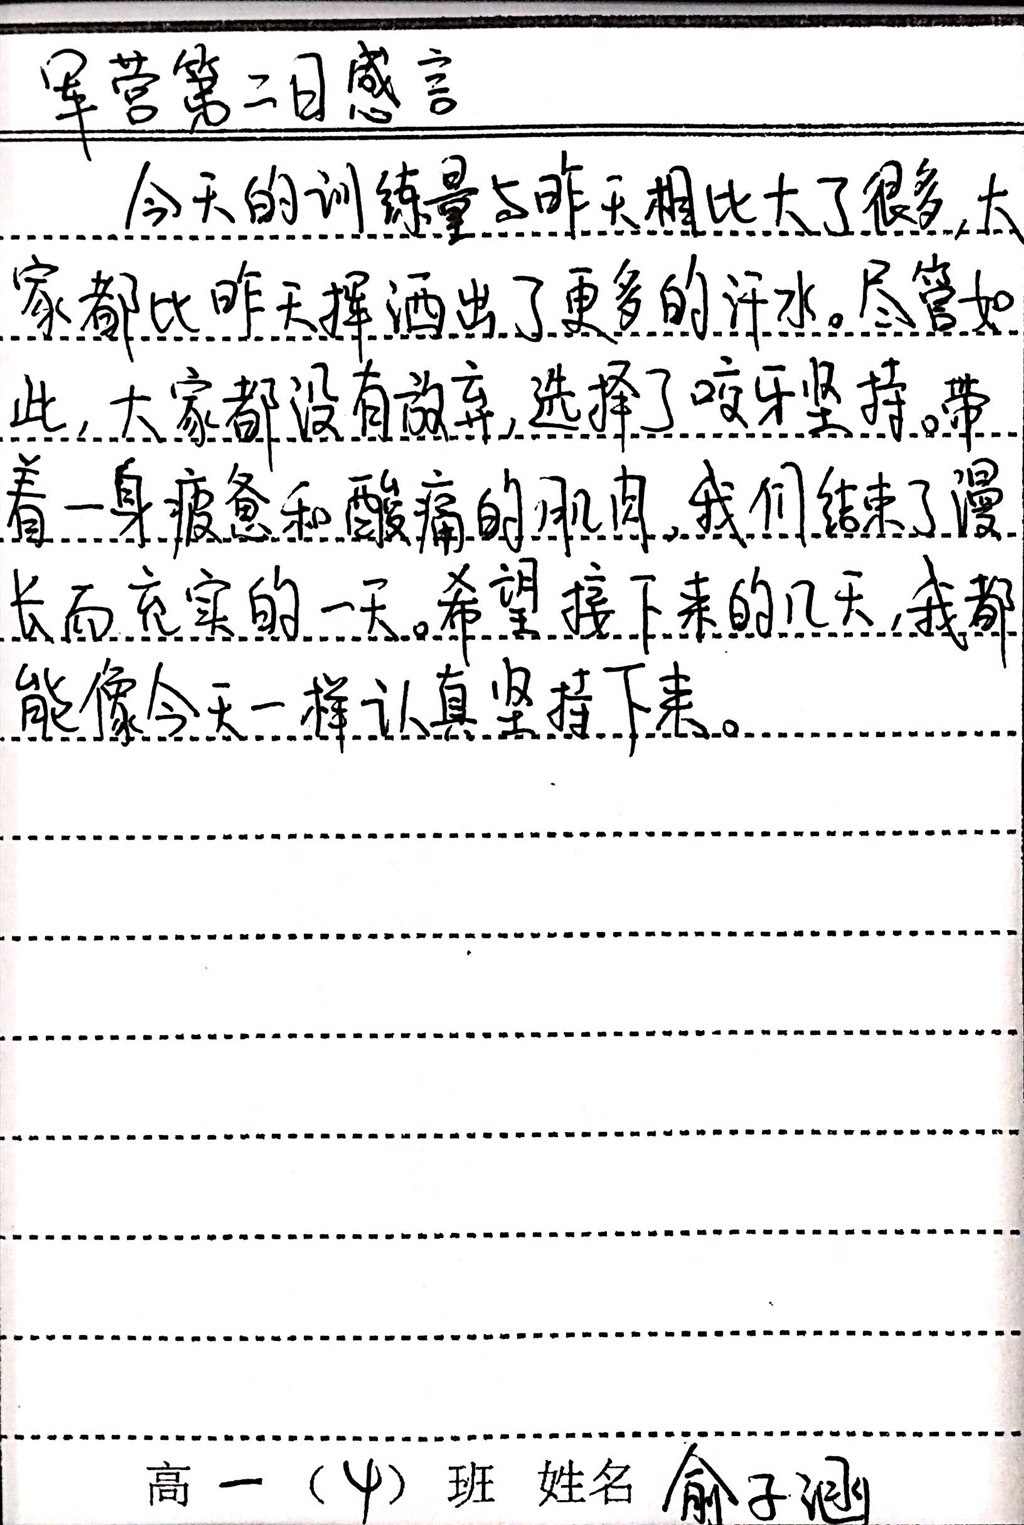 军营第二日感言
今天的训练量与昨天相比大了很多,大
家都比昨天挥洒出了更多的汗水。尽管如
此,大家都没有放弃,选择了咬牙坚持。带
着一身疲惫和酸痛的肌肉,我们结束了漫
长而充实的一天。希望接下来的几天,我都
能像今天一样认真坚持下来。
高一(4)班 姓名 俞子涵